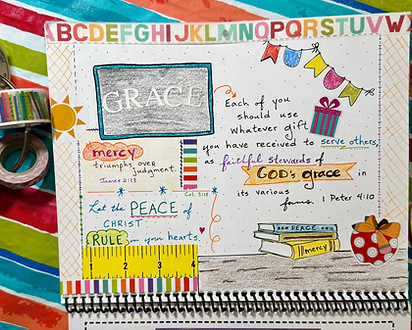 BCDEFGHIJKLMNOPQRSTUVW
GRACE
Each of you
should use
whatever gift
you have received to serve others,
as faithful stewards of
GOD's grace in
its various
forms. 1 Peter 4:10
mercy
triumphs over
judgment.
James 2:13
Col. 3:15
Let the PEACE of
CHRIST
RULE in your hearts.
1 2 3 4
PEACE
mercy